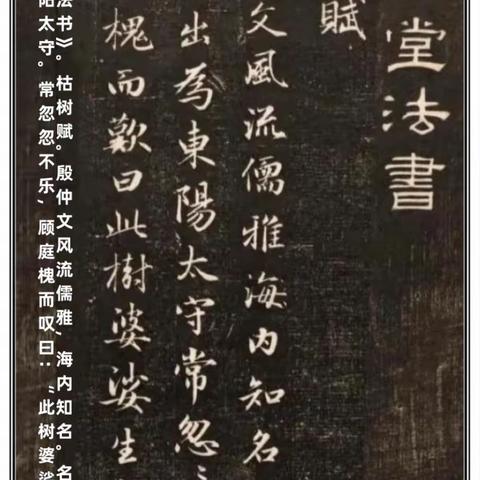 堂法書
賦
文風流儒雅海内知名
出為東陽太守常忽〻
槐而歎曰此樹婆娑生
法书》。枯树赋。殷仲文风流儒雅，海内知名。名
阳太守。常忽忽不乐，顾庭槐而叹曰：“此树婆娑